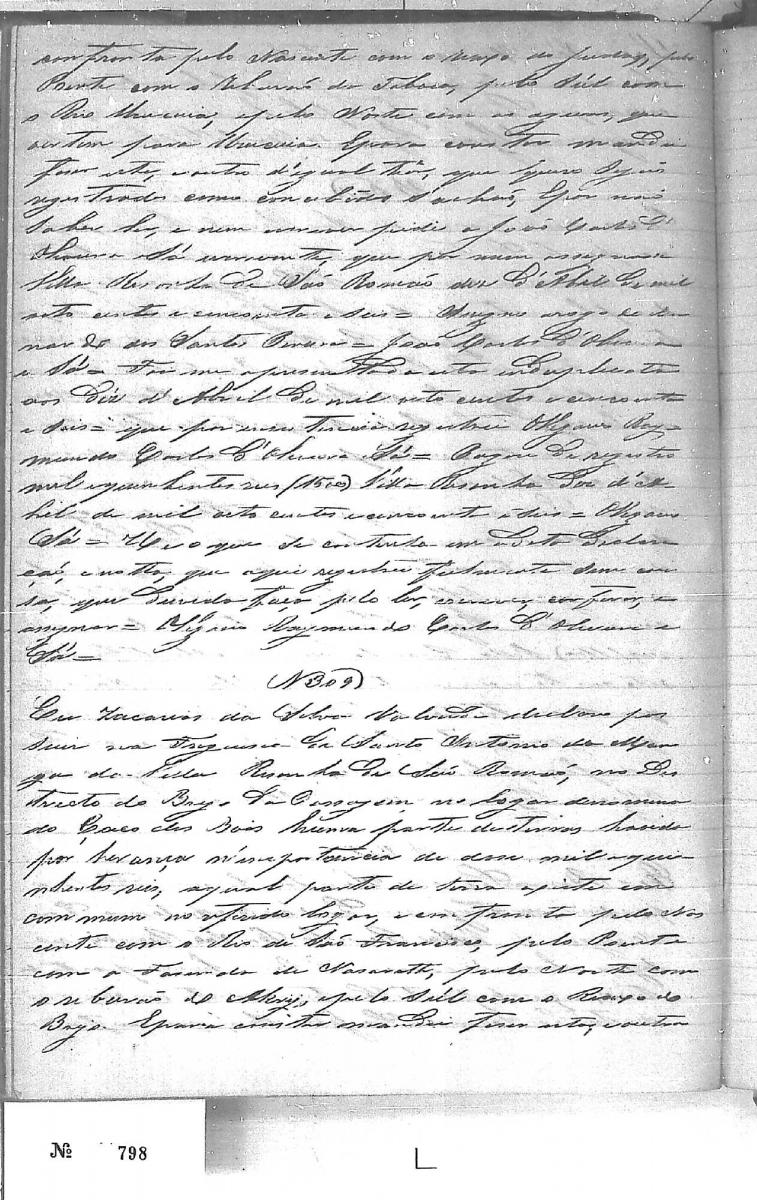 confronta pelo Nascente com o Riaxo do pelo
Poente com o Ribeirão da Taboca, pelo Súl com
o Rio Urucuia, e pelo Norte com as agoas, que
vertem para Urucuia. E para constar mandei
faser este, e outro d'igual thêor, que quero sejão
registrados como concebidos se achão, E por não
saber ler, e nem escrever pedi a João Carlos d'
Oliveira e Sá escrevente, que por mim assignasse
Villa Risonha de São Romão dez d'Abril de mil
oito centos e cincoenta e seis = Assigno arogo de
dos Santos Pereira = João Carlos d'Oliveira
e Sá = Foi me apresentada esta em duplicata
aos Dez d'Abril de mil oito centos e cincoenta
e seis = que por mim registrei O Vigario Ray=
mundo Carlos d'Oliveira e Sá = Pagou de registro
mil e quinhentos reis (1500) Villa Risonha Dez d'A=
bril de mil oito centos e cincoenta e seis = O Vigario
Sá = He o que se contenha em a dita Declara
ção, e notta, que aqui registrei fielmente sem cou
sa, que duvida faça pelo ler, escrever, conferir, e
assignar = O Vigario Raymundo Carlos d'Oliveira e
Sá =
(N 309)
Eu Zacarias da Silva declaro pos
suir na Freguesia de Santo Antonio da Man
ga da Villa Risonha de São Romão, no Des
tricto do Brejo da Passagem no logar denomina
do Bois huma parte de terras havida
por herança n'importancia de dose mil e qui
nhentos reis, a qual parte de terra é cita em
commum no referido logar, e confronta pelo Nas
cente com o Rio de São Francisco, pelo Poente
com a Fasenda de Nasareth, pelo Norte com
o ribeirão do Acary, e pelo Súl com o Riaxo do
Brejo. E para constar mandei faser esta, e outra
№ 798
L